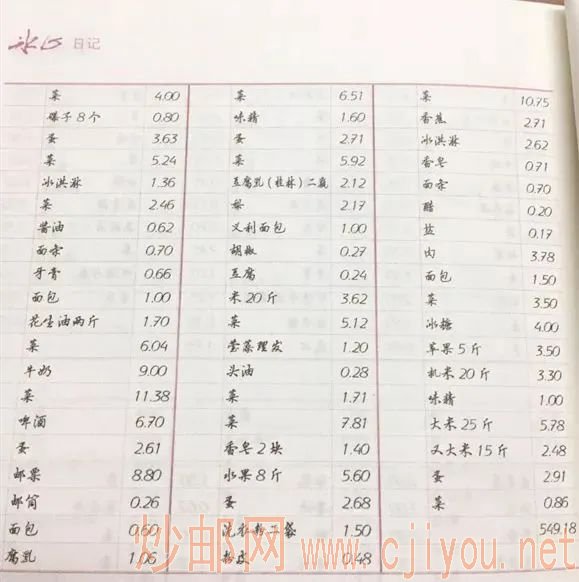 冰心 日记
菜 4.00
子8个 0.80
蛋 3.63
菜 5.24
冰淇淋 1.36
菜 2.46
酱油 0.62
面条 0.70
牙膏 0.66
面包 1.00
花生油两斤 1.70
菜 6.04
牛奶 9.00
菜 11.38
啤酒 6.70
蛋 2.61
邮票 8.80
邮简 0.26
面包 0.60
腐乳 1.06
菜 6.51
味精 1.60
蛋 2.71
菜 5.92
豆腐乳(桂林)二瓶 2.12
2.17
义利面包 1.00
胡椒 0.27
豆腐 0.24
米20斤 3.62
菜 5.12
莹藻理发 1.20
头油 0.28
菜 1.71
菜 7.81
香皂2块 1.40
水果8斤 5.60
蛋 2.68
洗衣粉二袋 1.50
皮 0.48
菜 10.75
香蕉 2.71
冰淇淋 2.62
香皂 0.71
面条 0.70
醋 0.20
盐 0.17
肉 3.78
面包 1.50
菜 3.50
冰糖 4.00
苹果5斤 3.50
机米20斤 3.30
味精 1.00
大米25斤 5.78
又大米15斤 2.48
蛋 2.91
菜 0.86
549.18
炒邮网 www.cjiyou.net